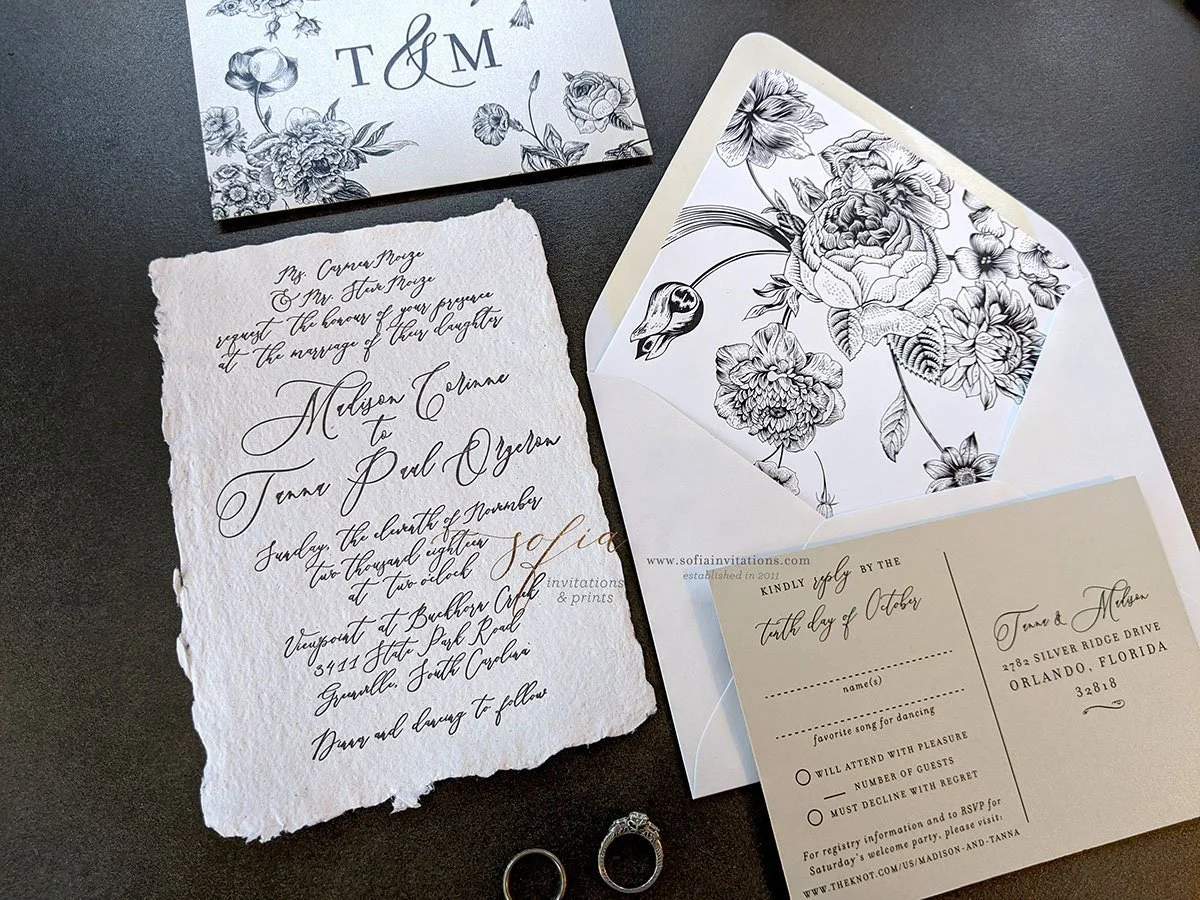 T & M
Ms. Carmen Moize
& Mr. Steve Moize
request the honour of your presence
at the marriage of their daughter
Madison Corinne
to
Tanna Paul Orgeron
Sunday, the eleventh of November
two thousand eighteen
at two o'clock
Viewpoint at Buckhorn Creek
3411 State Park Road
Greenville, South Carolina
Dinner and dancing to follow
sofia
invitations
& prints
www.sofiainvitations.com
established in 2011
KINDLY reply BY THE
tenth day of October
name(s)
favorite song for dancing
WILL ATTEND WITH PLEASURE
NUMBER OF GUESTS
MUST DECLINE WITH REGRET
For registry information and to RSVP for
Saturday's welcome party, please visit:
WWW.THEKNOT.COM/US/MADISON-AND-TANNA
Tanna & Madison
2782 SILVER RIDGE DRIVE
ORLANDO, FLORIDA
32818